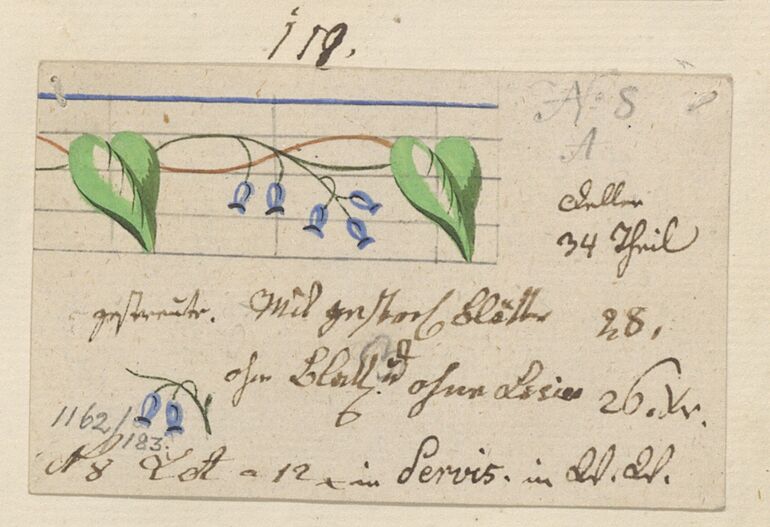 118.
N: 8
A
Teller
34 Theil
gestreute. Mit gestoch Blätter 28.
ohne Blatt ohne Desien 26. Xr.
1162/183.
N 8 Lit A 12 x in Servis. in W. W.